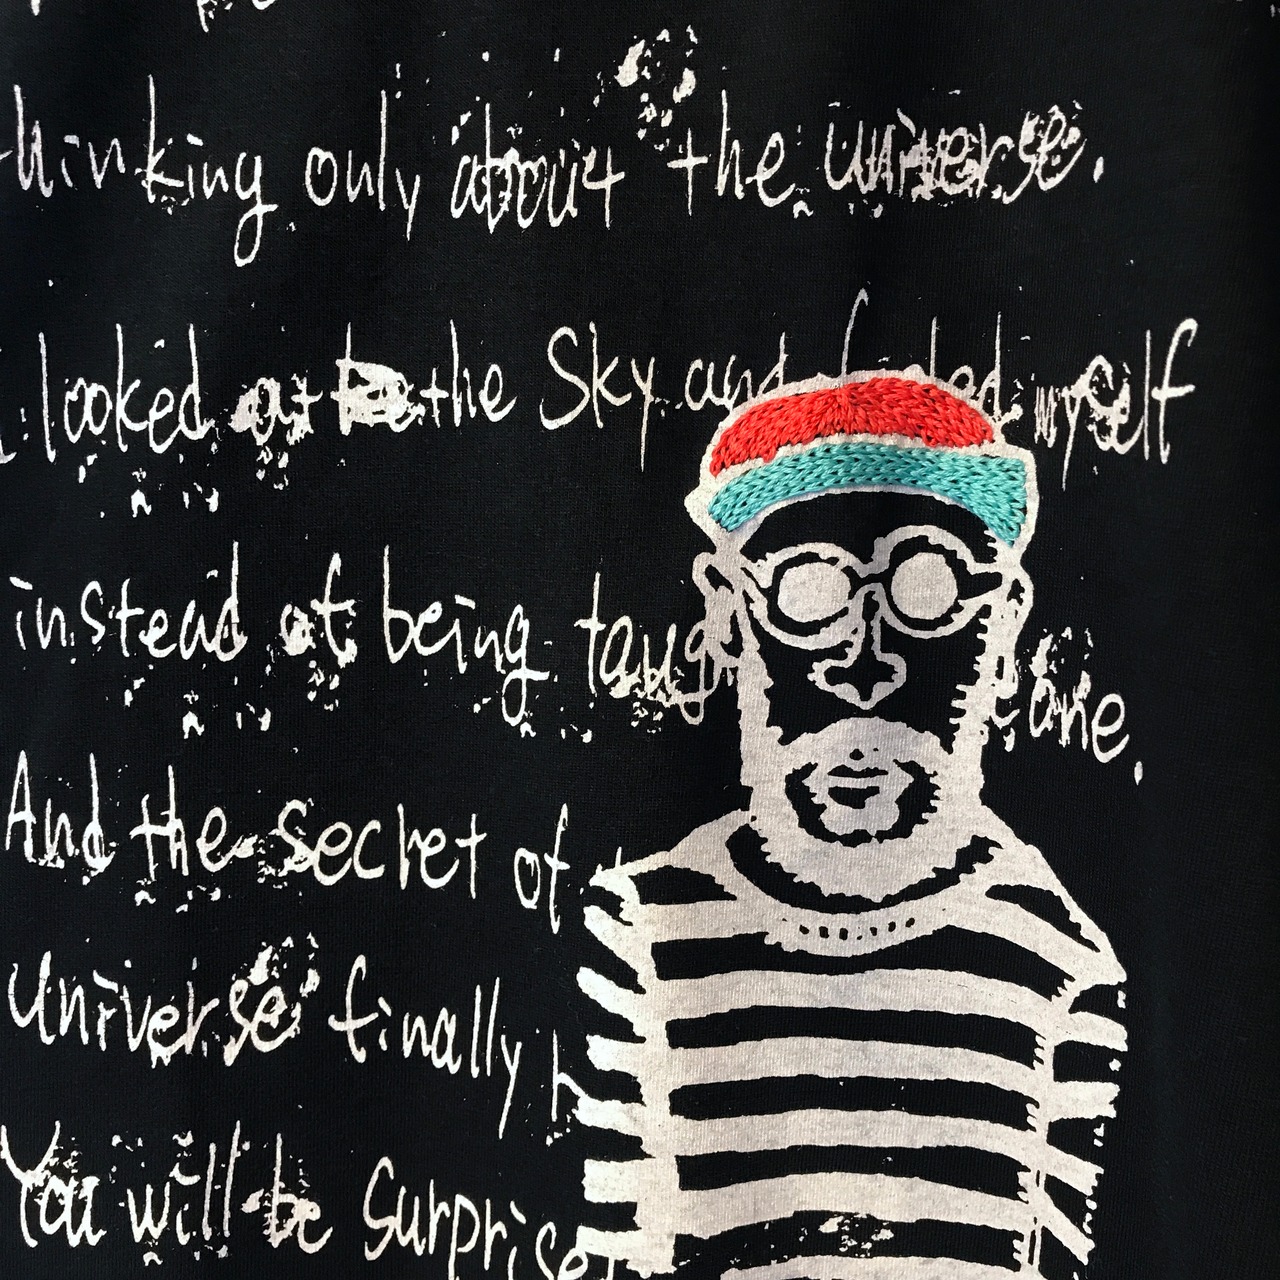 thinking only about the universe.
I looked at the Sky and myself
instead of being
And the secret of
Universe finally
You will be Surprised